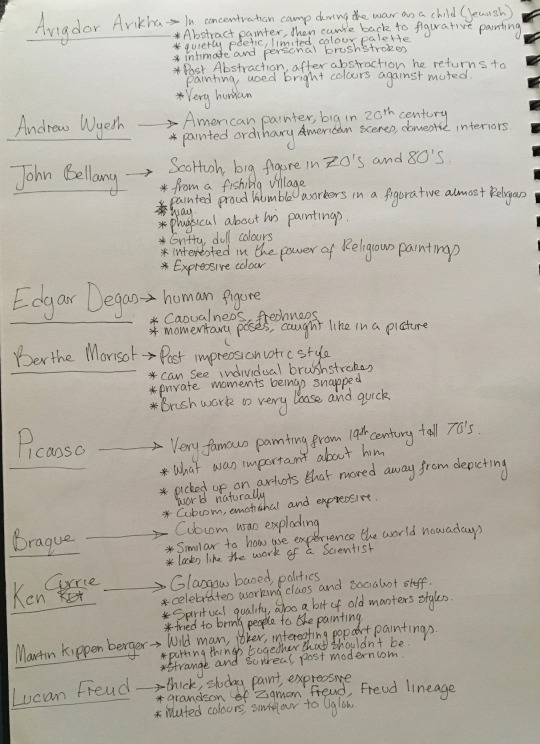 Avigdor Arikha → In concentration camp during the war as a child (Jewish)
* Abstract painter, then came back to figurative painting
* quietly poetic, limited colour palette
* intimate and personal brushstrokes
* Post Abstraction, after abstraction he returns to
painting, used bright colours against muted.
* Very human
Andrew Wyeth → American painter, big in 20th century
* painted ordinary American scenes, domestic interiors.
John Bellany → Scottish, big figure in 70's and 80's.
* from a fishing village
* painted proud humble workers in a figurative almost Religious
* way
* physical about his paintings.
* Gritty, dull colours
* interested in the power of Religious paintings
* Expressive colour
Edgar Degas → human figure
* Casualness, freshness
* momentary poses, caught like in a picture
Berthe Morisot → Post impressionistic style
* can see individual brushstrokes
* private moments beings snapped
* Brush work is very loose and quick
Picasso → Very famous painting from 19th century till 70's.
* What was important about him
* picked up on artists that moved away from depicting
world naturally
* Cubism, emotional and expressive.
Braque → Cubism was exploding
* Similar to how we experience the world nowadays
* looks like the work of a Scientist
Ken Currie → Glasgow based, politics
* celebrates working class and socialist stuff.
* Spiritual quality, also a bit of old masters styles.
* tried to bring people to the painting
Martin Kippenberger → Wild man, joker, interesting popart paintings.
* putting things together that shouldn't be.
* strange and surreal, post modernism.
Lucan Freud → thick, sludgy paint, expressive
* grandson of Zigmon Freud, Freud lineage
* Muted colours, similar to Uglow.